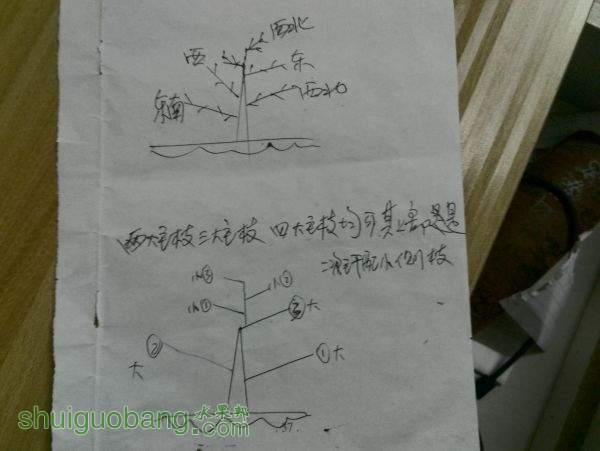 西北
西
东
东南
西北
两大主枝三大主枝 四大主枝均可其上
配小侧枝
小③
小②
小①
③大
②
大
①大
shuiguobang.com
水果邦